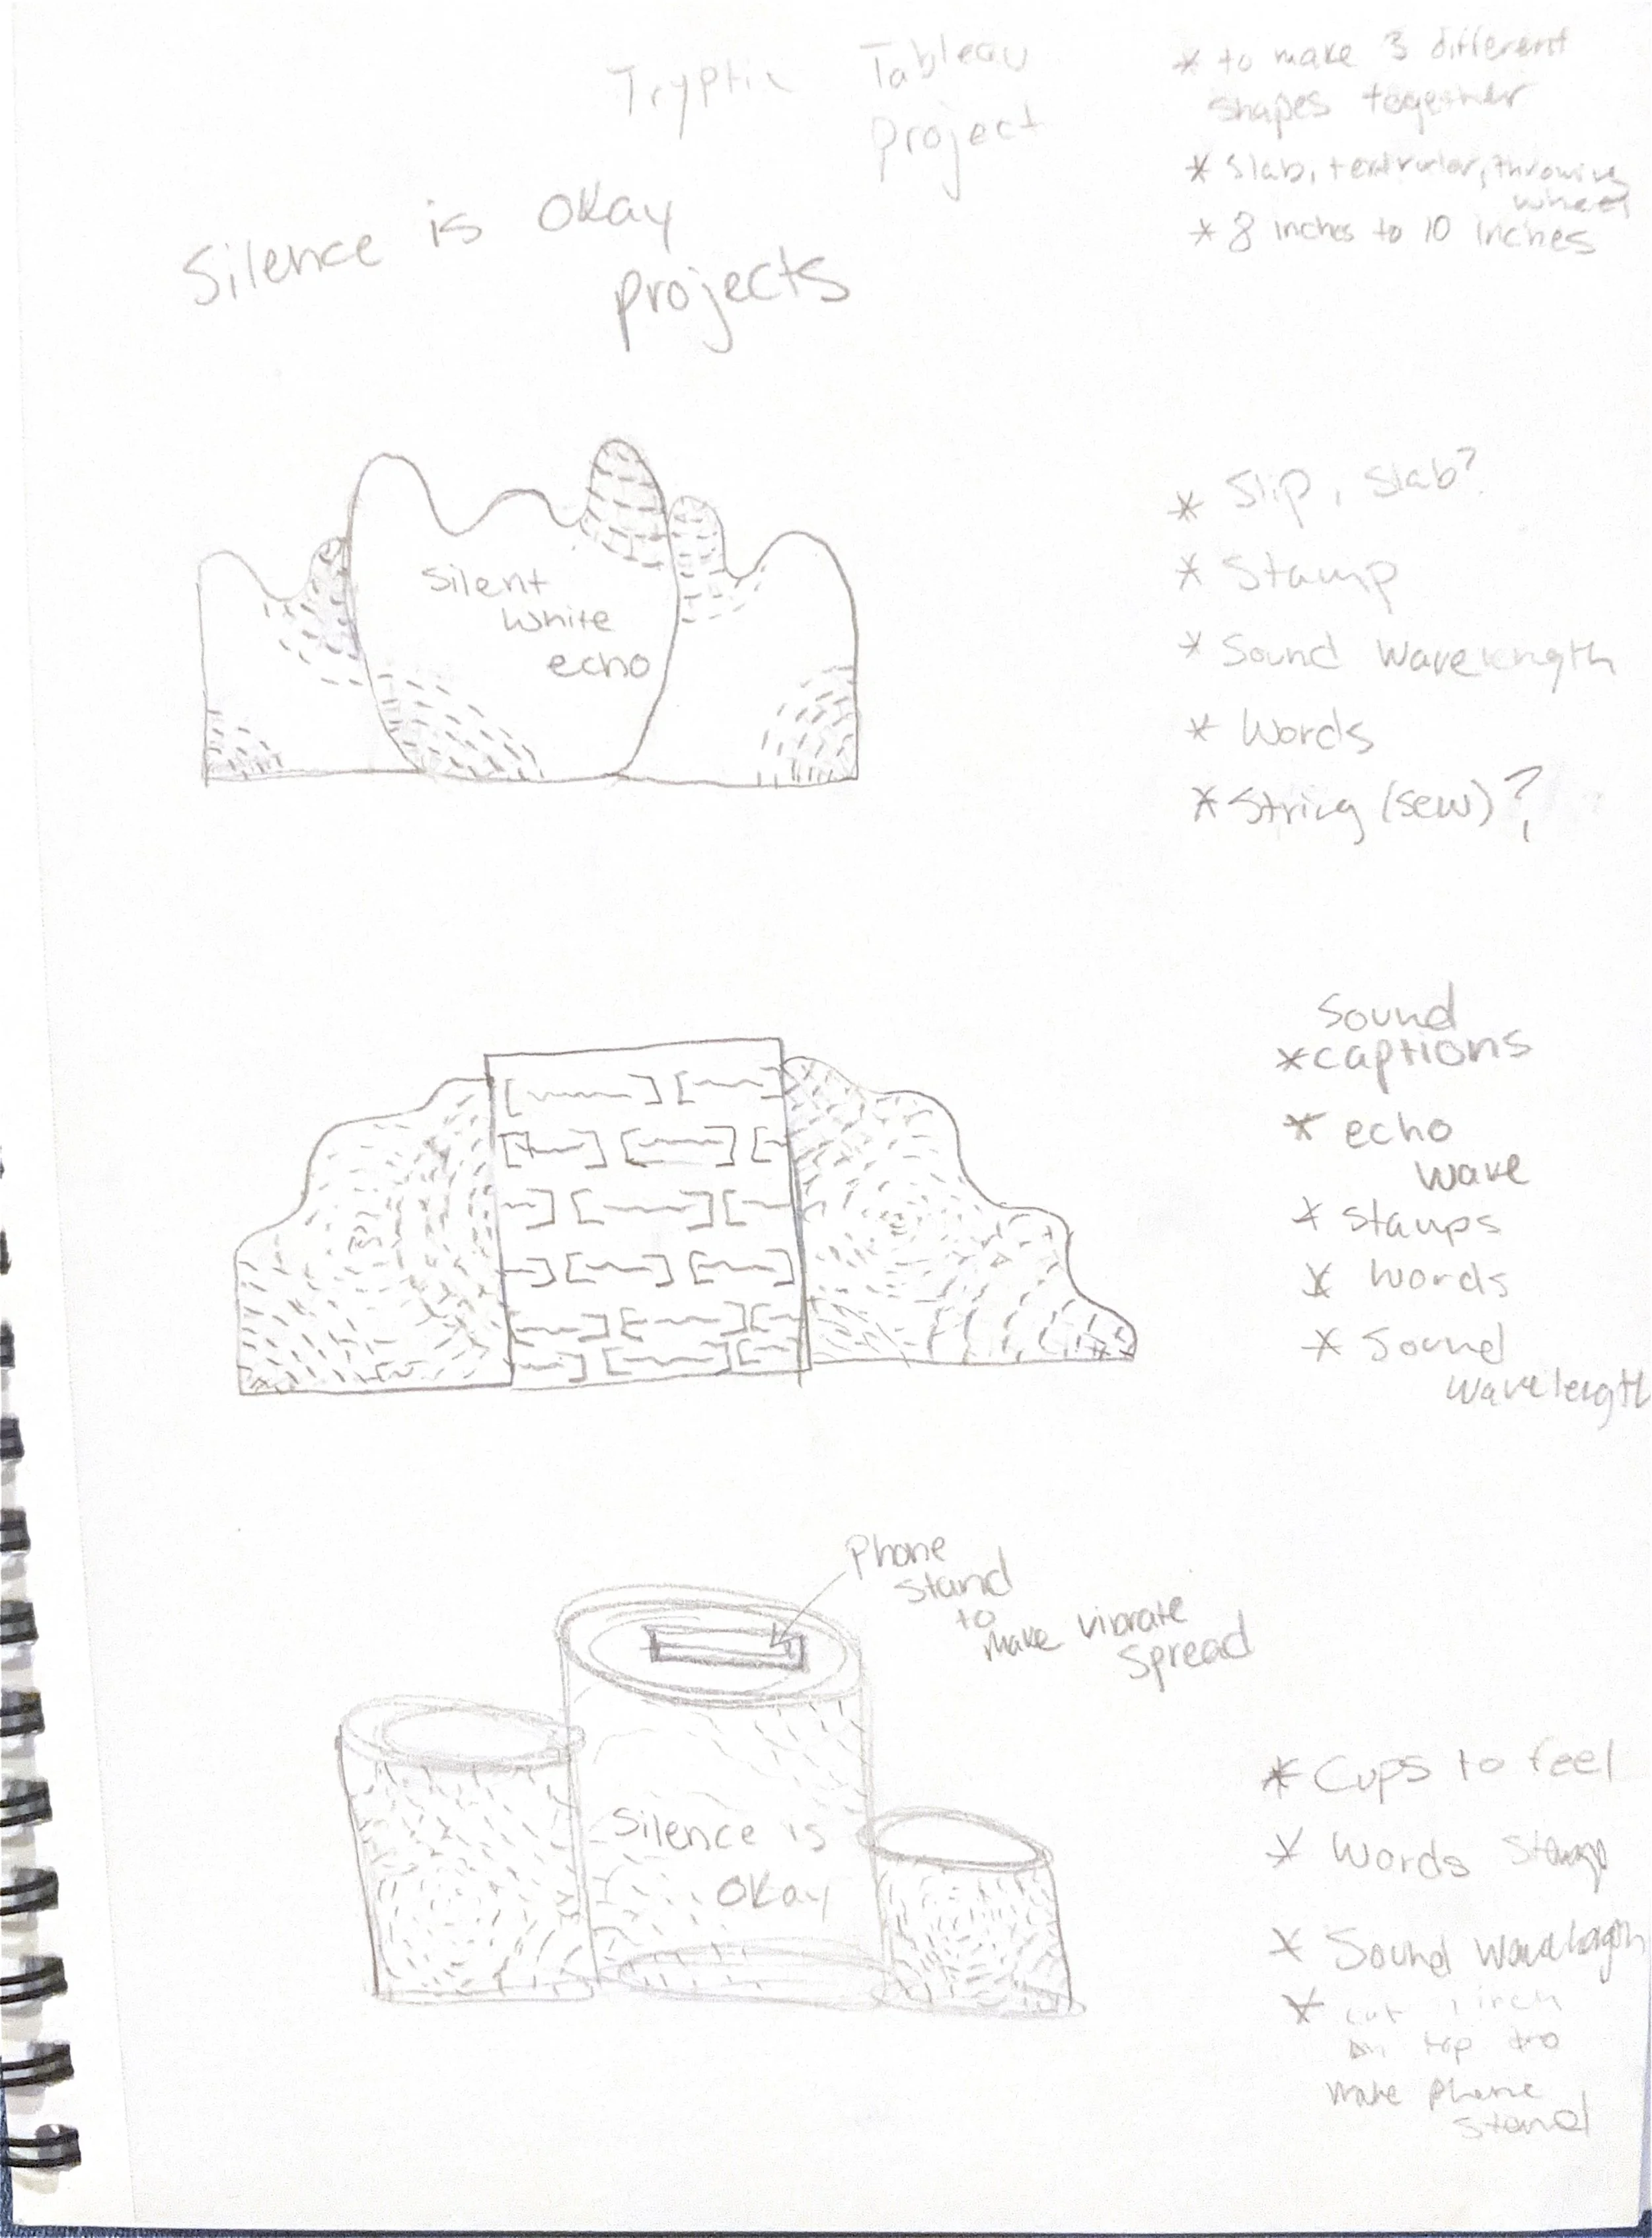 Tryptic Tableau
project
* to make 3 different
shapes together
* Slab, throwing
wheel
* 8 inches to 10 inches
Silence is okay
projects
Silent
white
echo
* Slip, slab?
* Stamp
* Sound wavelength
* Words
* String (sew)?
Sound
* captions
* echo
wave
* Stamps
* Words
* Sound
wavelength
Phone
stand
to
make vibrate
spread
Silence is
okay
* Cups to feel
* Words Stamp
* Sound wavelength
* cut 1 inch
on top to
make phone
stand